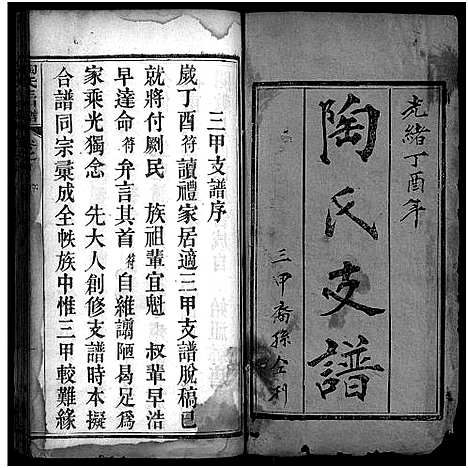 光緒丁酉年
陶氏支譜
三甲裔孫仝刊
三甲支譜序
歲丁酉符讀禮家居適三甲支譜脫稿已
就將付劂民 族祖輩宜魁 叔輩早浩
早達命符弁言其首符自維譾陋曷足為
家乘光獨念 先大人創修支譜時本擬
合譜同宗彙成全帙族中惟三甲較難緣